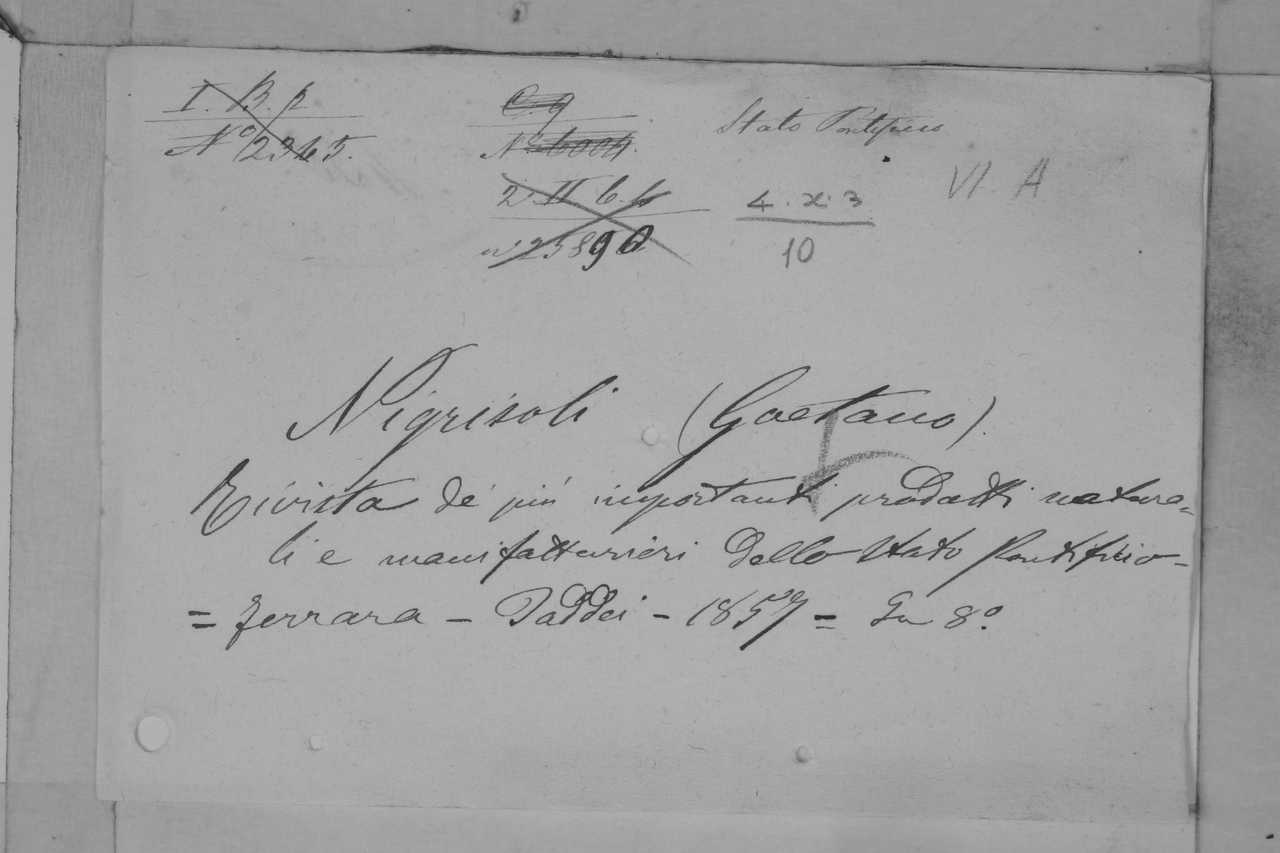 I. B. 2
Nº 2345.
C. 9
Nº 6004.
2 II 6.
nº 25890
Stato Pontificio
4. x. 3
10
VI. A
Nigrisoli (Gaetano).
Rivista de' più importanti prodotti natura=
li e manifatturieri dello Stato Pontificio-
= Ferrara - Taddei - 1857 = In 8.º